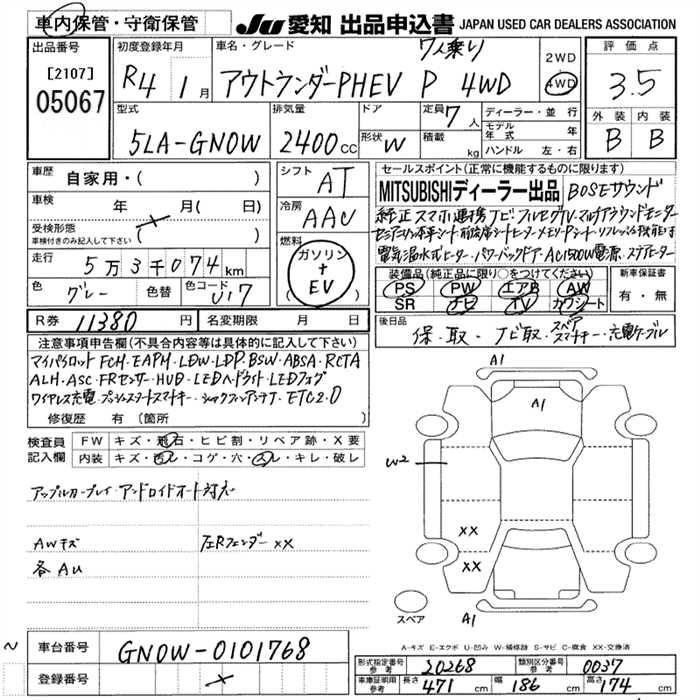 車内保管・守衛保管
JU 愛知 出品申込書 JAPAN USED CAR DEALERS ASSOCIATION
出品番号
[2107]
05067
初度登録年月
R4年1月
車名・グレード
7人乗り
アウトランダーPHEV P 4WD
2WD
4WD
評価点
3.5
外装 内装
B B
型式
5LA-GN0W
排気量
2400cc
ドア
形状 W
定員 7人
積載 kg
ディーラー・並行
モデル年式 年
ハンドル 左・右
車歴
自家用・( )
車検 年 月( 日)
受検形態
車検付きのみ記入して下さい ( )
走行 5万3千074km
色 グレー 色替 色コード U17
シフト AT
冷房 AAC
燃料
ガソリン
+
EV
セールスポイント(正常に機能するものに限ります)
MITSUBISHIディーラー出品 BOSEサウンド
純正スマホ連携ナビ・フルセグTV・マルチアラウンドモニター
セミアニリン本革シート・前後席シートヒーター・メモリーPシート・リフレッシュ機能付
電気温水式ヒーター・パワーバックドア・AC1500W電源・ステアヒーター
装備品(純正品に限り○をつけてください)
PS PW エアB AW
SR ナビ TV カワシート
新車保証書
有・無
R券 11380円 名変期限 月 日
後日品
保・取・ナビ取・スペアスマートキー・充電ケーブル
注意事項申告欄(不具合内容等は具体的に記入して下さい)
マイパイロット・FCM・EAPM・LDW・LDP・BSW・ABSA・RCTA
AHL・ASC・FRセンサー・HUD・LEDヘッドライト・LEDフォグ
ワイヤレス充電・プッシュスタートスマートキー・シャークフィンアンテナ・ETC2.0
修復歴 有 (箇所 )
検査員記入欄
FW キズ・飛石・ヒビ割・リペア跡・X要
内装 キズ・汚レ・コゲ・穴・スレ・キレ・破レ
アップルカープレイ・アンドロイドオート対応
AWキズ 左Rフェンダー XX
各AU
A1
A1
W2
XX
XX
A1
スペア
A-キズ E-エクボ U-凹み W-補修跡 S-サビ C-腐食 XX-交換済
車台番号 GN0W-0101768
登録番号
形式指定番号 参考 20268
類別区分番号 参考 0037
車庫証明用 参考 長さ 471cm 幅 186cm 高さ 174cm